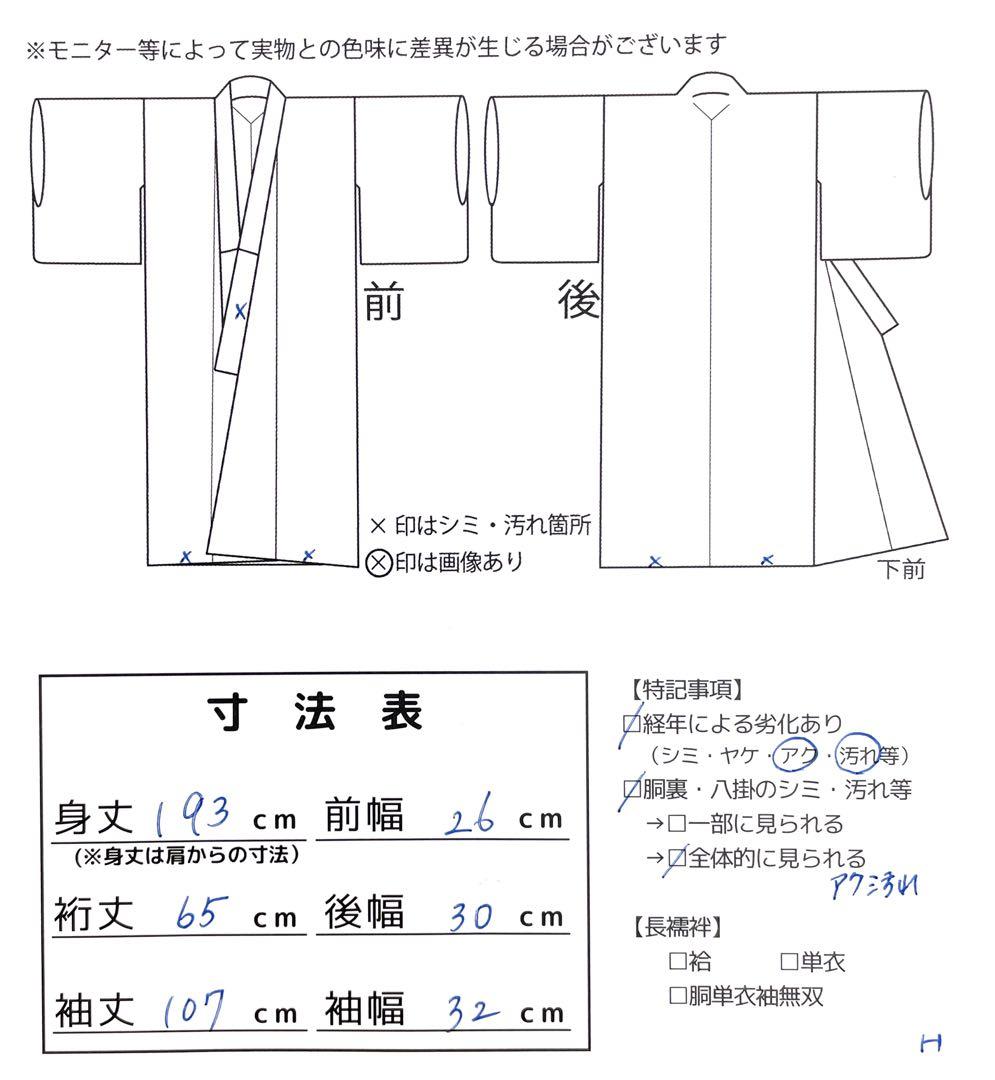 ※モニター等によって実物との色味に差異が生じる場合がございます
前
後
×
×印はシミ・汚れ箇所
⊗印は画像あり
× × × ×
下前
寸法表
身丈 193 cm 前幅 26 cm
(※身丈は肩からの寸法)
裄丈 65 cm 後幅 30 cm
袖丈 107 cm 袖幅 32 cm
【特記事項】
☑経年による劣化あり
(シミ・ヤケ・アク・汚れ等)
☑胴裏・八掛のシミ・汚れ等
→□一部に見られる
→☑全体的に見られる
【長襦袢】
□袷 □単衣
□胴単衣袖無双
H